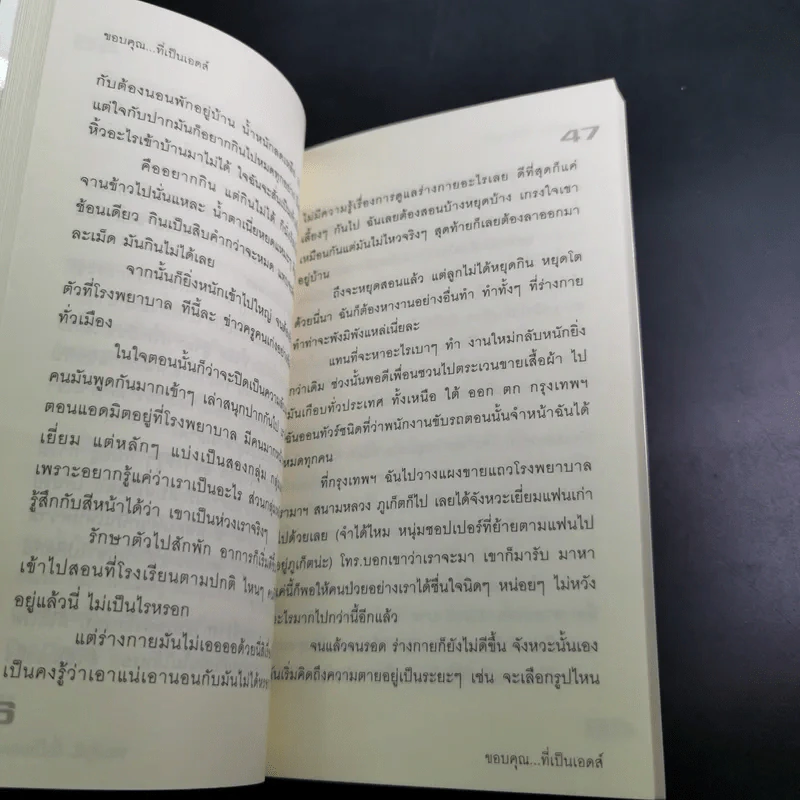 ขอบคุณ...ที่เป็นเอดส์
กับต้องนอนพักอยู่บ้าน น้ำหนักลด
แต่ใจกับปากมันก็อยากกินไปหมดทุกอย่าง
หิ้วอะไรเข้าบ้านมาไม่ได้ ใจฉันจะสั่น
คืออยากกิน แต่กินไม่ได้
จานข้าวไปนั่นแหละ น้ำตาเนี่ยหยดแหมะๆ
ช้อนเดียว กินเป็นสิบคำกว่าจะหมด
ละเม็ด มันกินไม่ได้เลย
จากนั้นก็ยิ่งหนักเข้าไปใหญ่
ตัวที่โรงพยาบาล ทีนี้ละ ข่าวครูคนเก่ง
ทั่วเมือง
ในใจตอนนั้นก็ว่าจะปิดเป็นความลับ
คนมันพูดกันมากเข้าๆ เล่าสนุกปากกันไป
ตอนแอดมิตอยู่ที่โรงพยาบาล มีคนมา
เยี่ยม แต่หลักๆ แบ่งเป็นสองกลุ่ม
เพราะอยากรู้แค่ว่าเราเป็นอะไร ส่วนกลุ่ม
รู้สึกกับสีหน้าได้ว่า เขาเป็นห่วงเราจริงๆ
รักษาตัวไปสักพัก อาการก็เริ่ม
เข้าไปสอนที่โรงเรียนตามปกติ ไหนๆ
อยู่แล้วนี่ ไม่เป็นไรหรอก
แต่ร่างกายมันไม่เออออด้วยนี่สิ
เป็นคงรู้ว่าเอาแน่เอานอนกับมันไม่ได้
6
47
ไม่มีความรู้เรื่องการดูแลร่างกายอะไรเลย ดีที่สุดก็แค่
เลื้องๆ กันไป ฉันเลยต้องสอนบ้างหยุดบ้าง เกรงใจเขา
เหมือนกันแต่มันไม่ไหวจริงๆ สุดท้ายก็เลยต้องลาออกมา
อยู่บ้าน
ถึงจะหยุดสอนแล้ว แต่ลูกไม่ได้หยุดกิน หยุดโต
ด้วยนี่นา ฉันก็ต้องหางานอย่างอื่นทำ ทำทั้งๆ ที่ร่างกาย
ทำท่าจะพังมิพังแหล่เนี่ยละ
แทนที่จะหาอะไรเบาๆ ทำ งานใหม่กลับหนักยิ่ง
กว่าเดิม ช่วงนั้นพอดีเพื่อนชวนไปตระเวนขายเสื้อผ้า ไป
มันเกือบทั่วประเทศ ทั้งเหนือ ใต้ ออก ตก กรุงเทพฯ
ฉันออนทัวร์ชนิดที่ว่าพนักงานขับรถตอนนั้นจำหน้าฉันได้
หมดทุกคน
ที่กรุงเทพฯ ฉันไปวางแผงขายแถวโรงพยาบาล
รามาฯ สนามหลวง ภูเก็ตก็ไป เลยได้จังหวะเยี่ยมแฟนเก่า
ไปด้วยเลย (จำได้ไหม หนุ่มชอปเปอร์ที่ย้ายตามแฟนไป
อยู่ภูเก็ตน่ะ) โทร.บอกเขาว่าเราจะมา เขาก็มารับ มาหา
แค่นี้ก็พอให้คนป่วยอย่างเราได้ชื่นใจนิดๆ หน่อยๆ ไม่หวัง
อะไรมากไปกว่านี้อีกแล้ว
จนแล้วจนรอด ร่างกายก็ยังไม่ดีขึ้น จังหวะนั้นเอง
ฉันเริ่มคิดถึงความตายอยู่เป็นระยะๆ เช่น จะเลือกรูปไหน
ขอบคุณ...ที่เป็นเอดส์